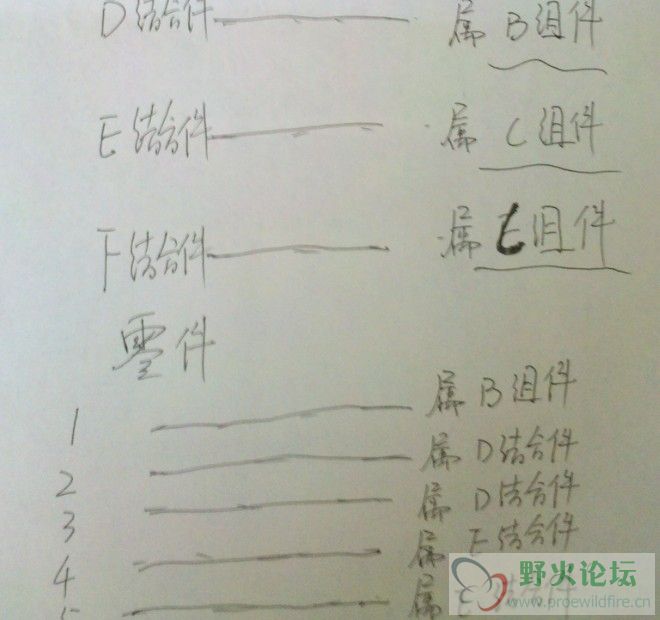 D结合件 属 B组件
E结合件 属 C组件
F结合件 属 E组件
零件
1 属 B组件
2 属 D结合件
3 属 D结合件
4 属 E结合件
5 属 结合件
野火论坛
www.proewildfire.cn